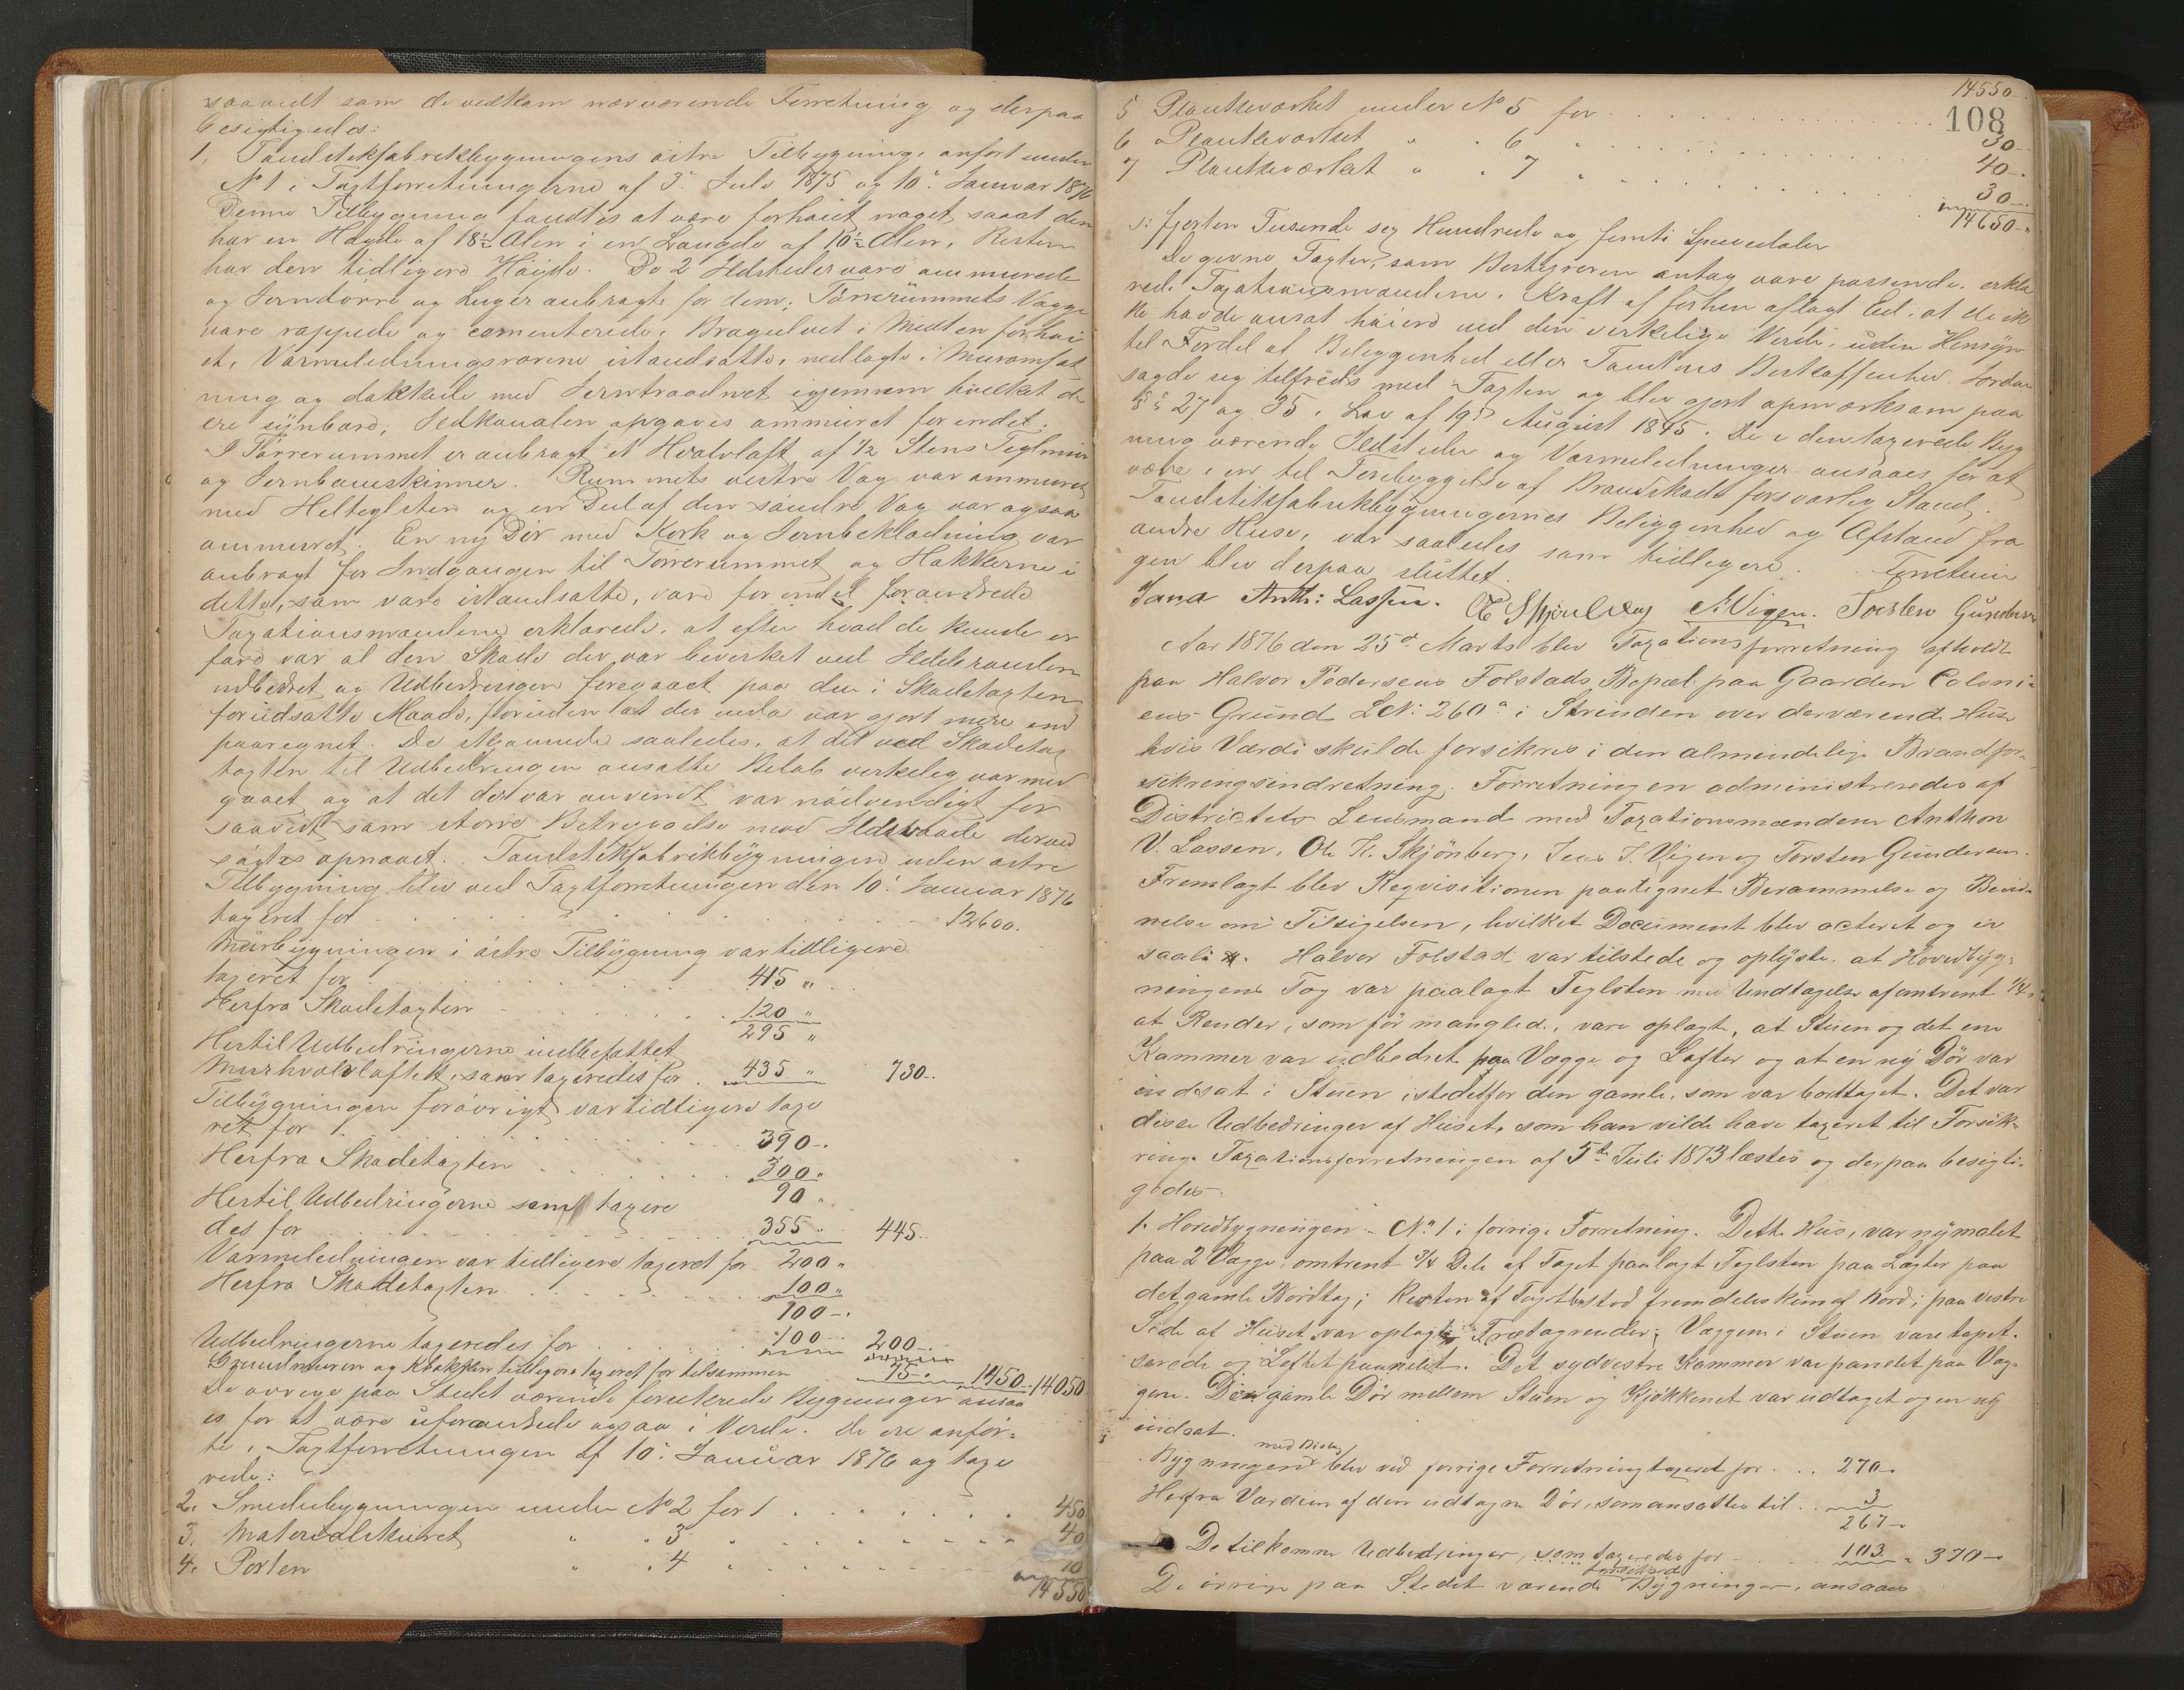 saavidt som de vedkom nærværende Forretning og derpaa
besigtigedes:
1. Tændstikfabrikbygningens østre Tilbygning, anført under
No 1 i Taxtforretningerne af 3die Juli 1875 og 10de Januar 1876
Denne Tilbygning fandtes at være forhøiet noget, saaat den
har en Høyde af 18½ Alen i en Længde af 10½ Alen, Resten
har den tidligere Høyde. De 2 Ildsteder vare ommurede
og Jerndørre og Luger anbragte for dem; Tørrerummets Vægge
vare rappede og cementerede, Bragulvet i Midten forhøi
et, Varmeledningsrørene istandsatte, nedlagte i Muromfat
ning og dækkede med Jerntraadnet igjennem hvilket de
ere synbare, Ildkanalen opgaves ommuret for endel.
I Tørrerummet er anbragt et Hvælvloft af ½ Stens Teglmur
og Jernbaneskinner. Rummets vestre Væg var ommuret
med Helteglsten og en Del af den søndre Væg var ogsaa
ommuret. En ny Dør med Kork og Jernbeklædning var
anbragt for Indgangen til Tørrerummet og Hakkerne i
dette, som vare istandsatte, vare for endel forandrede
Taxationsmændene erklærede, at efter hvad de kunde er
fare var al den Skade der var bevirket ved Ildebranden
udbedret og Udbedringen foregaaet paa den i Skadetaxten
forudsatte Maade, foruden at der endu var gjort mere end
paaregnet. De skjønnede saaledes, at det ved Skadetax
taxten til Udbedringen ansatte Beløb virkelig var med
gaaet og at det der var anvendt var nødvendigt for
saavidt som større Betryggelse mod Ildsvaade derved
søgtes opnaaet. Tændstikfabrikbygningen uden østre
Tilbygning blev ved Taxtforretningen den 10de Januar 1876
taxeret for 12600.
Murbygningen i østre Tilbygning var tidligere
taxeret for 415 "
Herfra Skadetaxten 120 "
295 "
Hertil Udbedringerne indbefattet
Murhvælvloftet, som taxeredes for 435 " 730..
Tilbygningen forøvrigt var tidligere taxe
ret for 390-.
Herfra Skadetaxten 300 "
90 "
Hertil Udbedringerne som taxere
des for 355 . 445..
Varmeledningen var tidligere taxeret for 200 "
Herfra Skadetaxten 100 "
100-.
Udbedringerne taxeredes for 100-. 200-.
Grundmuren og Klokken tidligere taxeret for tilsammen 75-. 1450. 14050
De øvrige paa Stedet værende forsikrede Bygninger ansaa
es for at være uforandrede ogsaa i Værdi. De ere anfør=
te i Taxtforretningen af 10de Januar 1876 og taxe
rede:
2. Smedebygningen under No 2 for 450
3. Materialskuret " " 3 " 40
4. Porten " " 4 " 10
14550
14550
108
5 Plankeværket under No 5 for 30-
6 Plankeværket " " 6 " 40-.
7 Plankeværket " " 7 " 30-.
14650-.
s: fjorten Tusende sex Hundrede og femti Speciedaler
De givne Taxter, som Bestyreren antog vare passende, erklæ
rede Taxationsmændene i Kraft af forhen aflagt Ed, at de ik
ke havde ansat høiere end den virkelige Værdi, uden Hensyn
til Fordel af Beliggenhed eller Tomtens Beskaffenhed. Jordan
sagde sig tilfreds med Taxten og blev gjort opmærksom paa
§§ 27 og 35 i Lov af 19de August 1845. De i den taxerede Byg
ning værende Ildsteder og Varmeledninger ansaaes for at
være i en til Forebyggelse af Brandskade forsvarlig Stand.
Tændstikfabrikbygningernes Beliggenhed og Afstand fra
andre Huse, var saaledes som tidligere. Forretnin
gen blev derpaa sluttet.
Jana Anth: Lassen. O H Skjønberg J. Vigen. Torsten Gundersen
Aar 1876 den 25de Marts blev Taxationsforretning afholdt
paa Halvor Pedersens Folstads Bopæl paa Gaarden Coloni=
ens Grund LNo 260a i Strinden over derværende Huse
hvis Værdi skulde forsikres i den almindelige Brandfor=
sikringsindretning. Forretningen administreredes af
Districtets Lensmand med Taxationsmændene Anthon
V. Lassen, Ole H. Skjönberg, Jens J. Vigen og Torsten Gundersen.
Fremlagt blev Reqvisitionen paategnet Berammelse og Bevid=
nelse om Tilsigelsen, hvilket Document blev acteret og er
saal. Halvor Folstad var tilstede og oplyste, at Hovedbyg=
ningens Tag var paalagt Teglsten med Undtagelse af omtrent 1/4,
at Render, som för manglede, vare oplagte, at Stuen og det ene
Kammer var udbedret paa Vægge og Lofter og at en ny Dør var
indsat i Stuen istedetfor den gamle, som var borttaget. Det var
disse Udbedringer af Huset, som han vilde have taxeret til Forsik=
ring. Taxationsforretningen af 5te Juli 1873 læstes og derpaa besigti=
gedes:
1. Hovedbygningen - No 1 i forrige Forretning. Dette Hus, var nymalet
paa 2 Vægge, omtrent 3/4 Dele af Taget paalagt Teglsten paa Lægter paa
det gamle Bordtag; Resten af Taget bestod fremdeles kun af Bord; paa vestre
Side af Huset var oplagte Trætagrender; Væggene i Stuen vare tapet=
serede og Loftet paanelet. Det sydvestre Kammer var panelet paa Væg=
gene. Den gamle Dør mellem Stuen og Kjøkkenet var udtaget og en ny
indsat.
med Bislag
Bygningen blev ved forrige Forretning taxeret for 270-.
Herfra Værdien af den udtagne Dør, som ansattes til 3
267-
De tilkomne Udbedringer, som taxeredes for 103. = 370-
forsikrede
De øvrige paa Stedet værende Bygninger, ansaaes